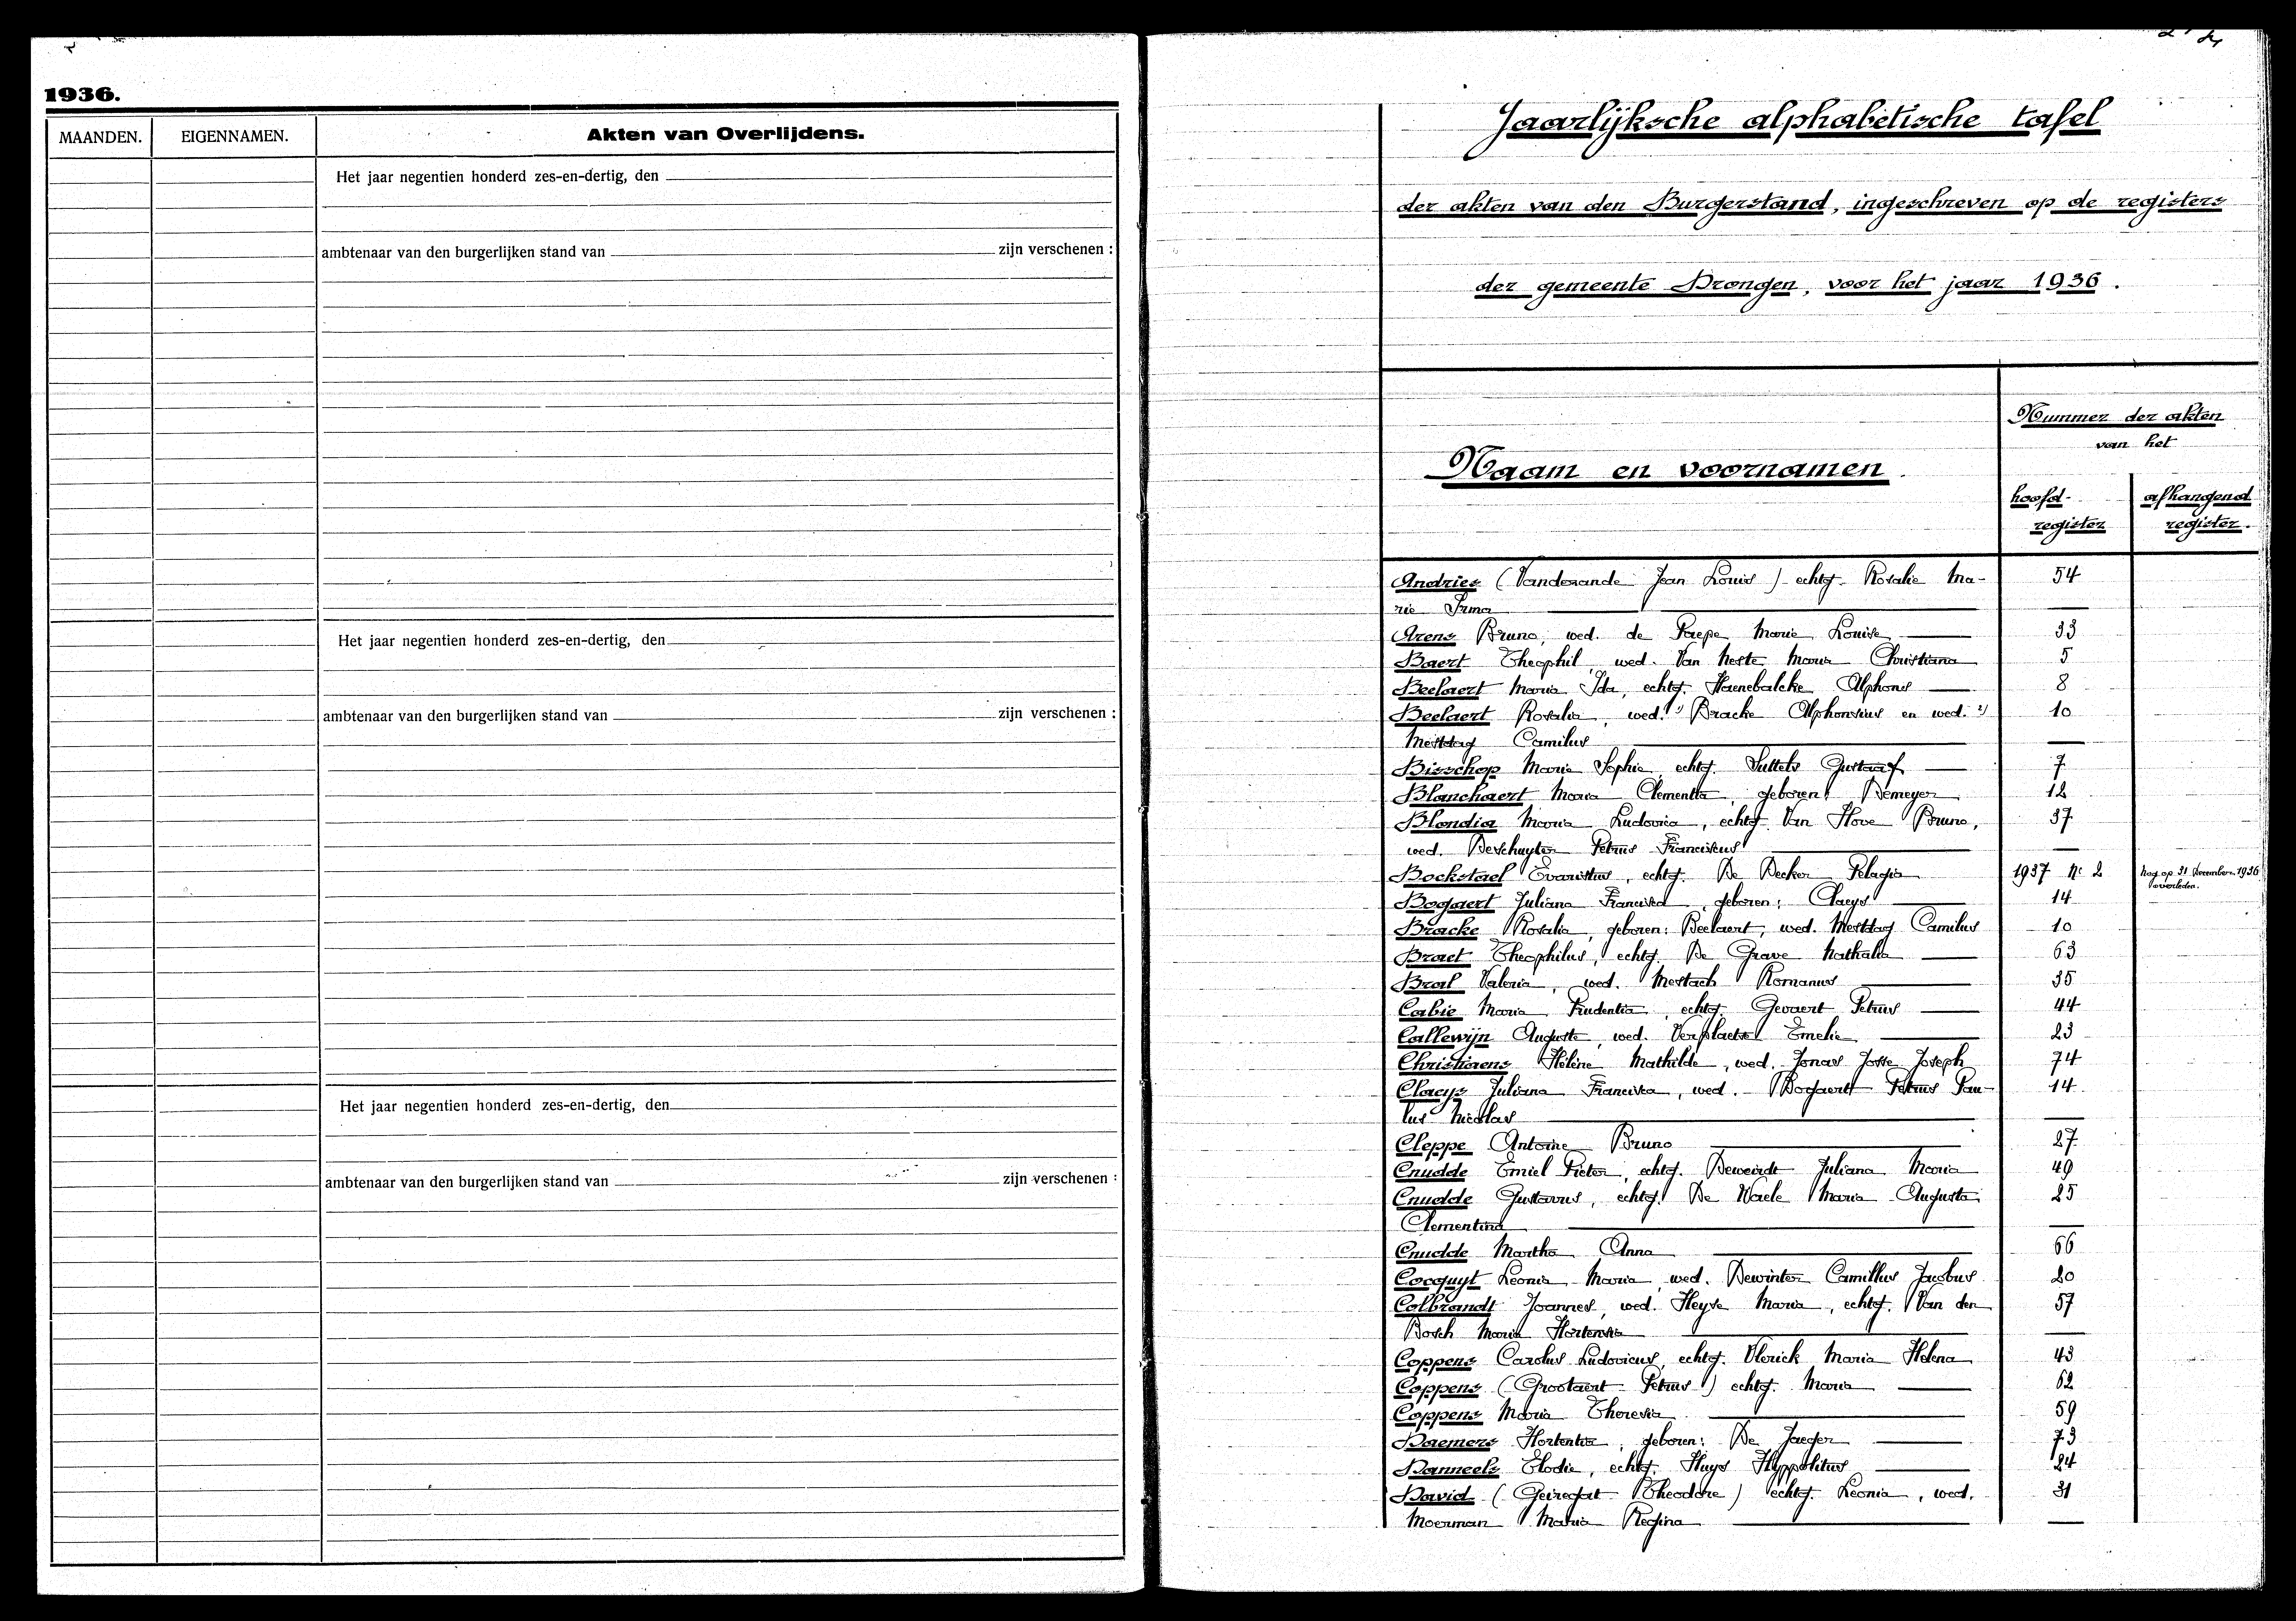 1936.
MAANDEN. EIGENNAMEN. Akten van Overlijdens.
Het jaar negentien honderd zes-en-dertig, den
ambtenaar van den burgerlijken stand van zijn verschenen :
Het jaar negentien honderd zes-en-dertig, den
ambtenaar van den burgerlijken stand van zijn verschenen :
Het jaar negentien honderd zes-en-dertig, den
ambtenaar van den burgerlijken stand van zijn verschenen :
Jaarlijksche alphabetische tafel
der akten van den Burgerstand, ingeschreven op de registers
der gemeente Drongen, voor het jaar 1936.
Nummer der akten
van het
Naam en voornamen.
hoofd- afhangend
register register.
Andries (Vandezande Jean Louis) echtg. Rosalie Ma- 54
rie Irma
Arens Bruno, wed. de Paepe Marie Louise 33
Baert Theophil, wed. Van Neste Maria Christiana 5
Beelaert Maria Ida, echtg. Haenebalcke Alphons 8
Beelaert Rosalia, wed. 1) Bracke Alphonsius en wed. 2) 10
Mestdag Camilus
Bisschop Maria Sophia, echtg. Suttels Gustaaf 7
Blanchaert Maria Clementia, geboren: Demeyer 12
Blondia Maria Ludovica, echtg. Van Hove Bruno, 37
wed. Deschuyter Petrus Franciscus
Bockstael Evaristus, echtg. De Decker Pelagia 1937 Nr 2 Nog op 31 December 1936
overleden.
Bogaert Juliana Francisca, geboren: Claeys 14
Bracke Rosalia, geboren: Beelaert, wed. Mestdag Camilus 10
Braet Theophilus, echtg. De Grave Nathalia 63
Bral Valeria, wed. Mestach Romanus 35
Cabie Maria Prudentia, echtg. Gevaert Petrus 44
Callewijn Auguste, wed. Verplaetse Emelie 23
Christiaens Helène Mathilde, wed. Jonas Josse Joseph 74
Claeys Juliana Francisca, wed. Bogaert Petrus Pau- 14
lus Nicolas
Cleppe Antoine Bruno 27
Cnudde Emiel Pieter, echtg. Deweirdt Juliana Maria 49
Cnudde Gustavus, echtg. De Waele Maria Augusta 25
Clementina
Cnudde Martha Anna 66
Cocquyt Leonia Maria, wed. Dewinter Camillus Jacobus 20
Colbrandt Joannes, wed. Heyse Maria, echtg. Van den 57
Bosch Maria Hortensia
Coppens Carolus Ludovicus, echtg. Vlerick Maria Helena 43
Coppens (Grootaert Petrus) echtg. Maria 62
Coppens Maria Theresia 59
Daemers Hortentia, geboren: De Jaeger 73
Danneels Elodie, echtg. Huys Hyppolitus 24
David (Geiregat Theodore) echtg. Leonia, wed. 31
Moerman Maria Regina